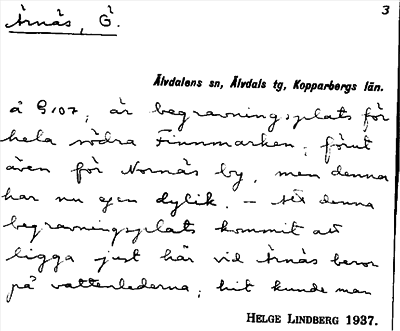 Årnäs, G.
3
Älvdalens sn, Älvdals tg, Kopparbergs län.
å G 107; är begravningsplats för
hela södra Finnmarken; förut
även för Nornäs by, men denna
har nu egen dylik. — Att denna
begravningsplats kommit att
ligga just här vid Årnäs beror
på vattenlederna; hit kunde man
HELGE LINDBERG 1937.